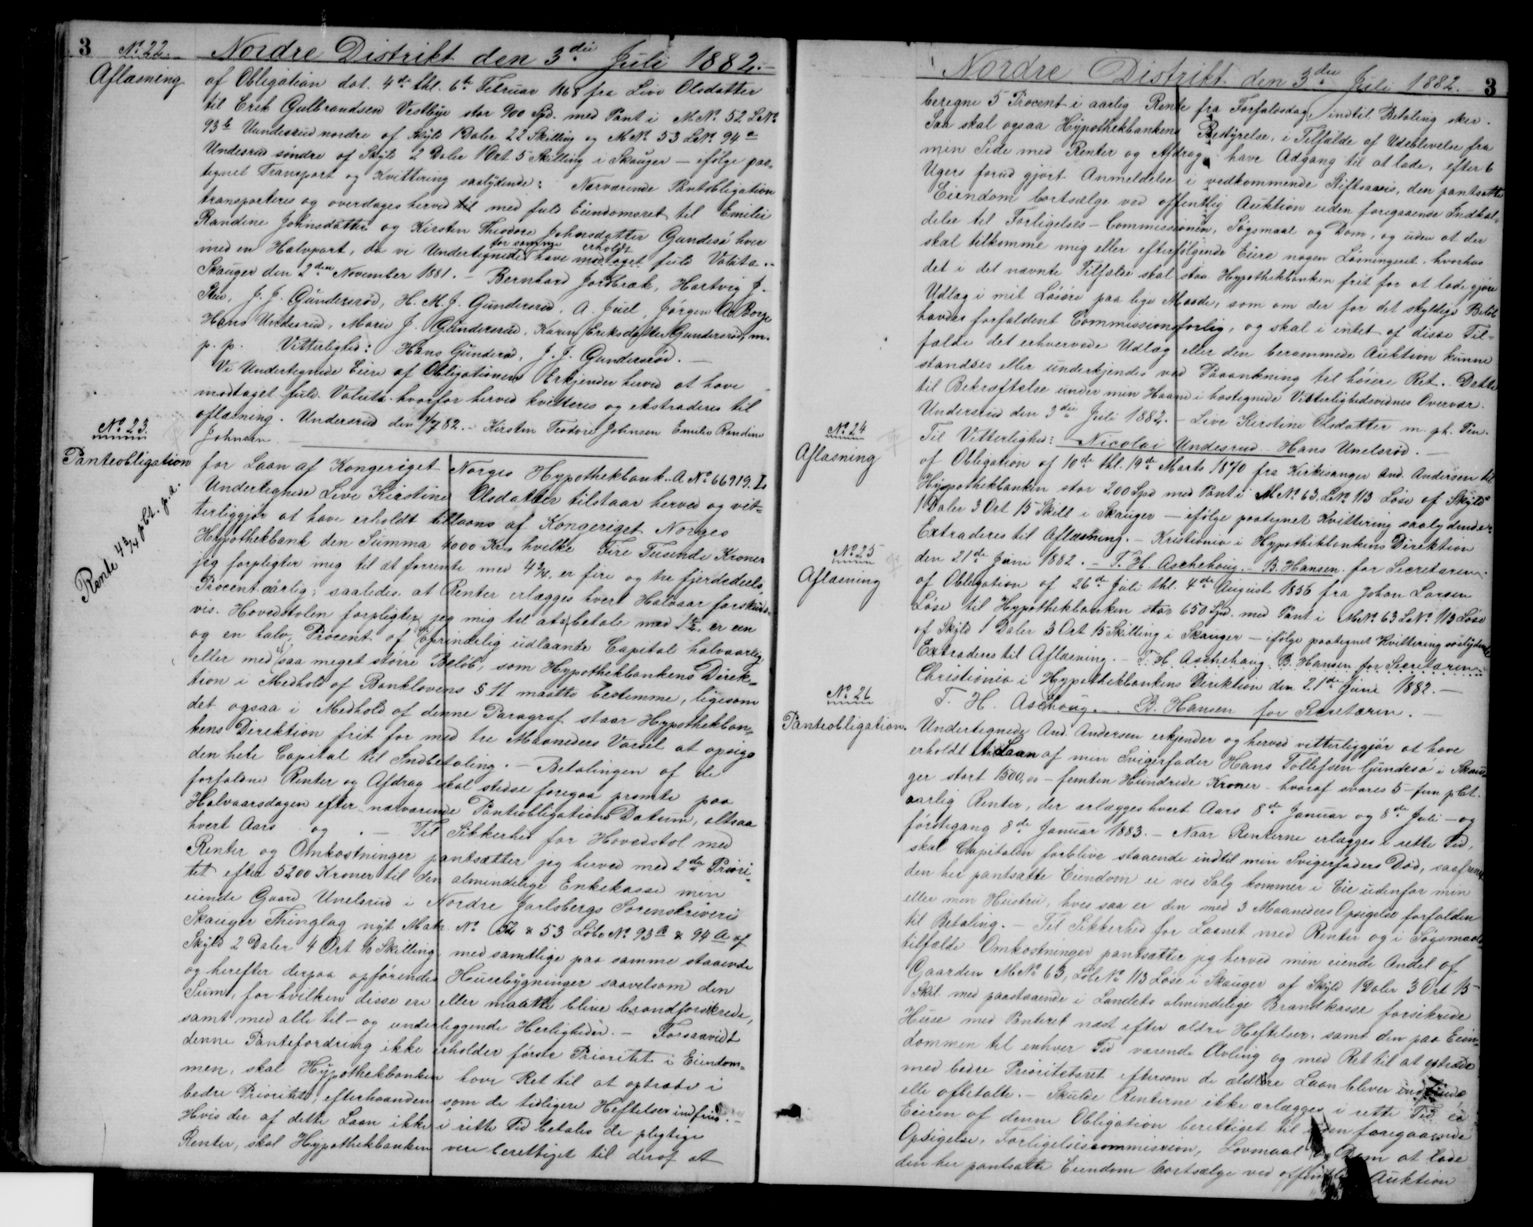 3
No 22.
Nordre Distrikt den 3die Juli 1882.-
Aflæsning
af Obligation dat. 4de thl. 6te Februar 1868 fra Live Olsdatter
til Erik Gulbrandsen Vestbye stor 900 Spd. med Pant i M.No. 52 L.No.
93b Undesrud nordre af Skyld 1 Daler 22 Skilling og M.No. 53 L.No. 94a
Undesrud søndre af Skyld 2 Daler 1 Ort 5 Skilling i Skauger - ifølge paa-
tegnet Transport og Kvittering saalydende: Nærværende Pantobligation
transporteres og overdrages herved til med fuld Eiendomsret til Emilie
Randine Johnsdatter og Kirsten Theodore Johnsdatter Gundesø hver
med en Halvpart, da vi Undertegnede for samme have erholdt modtaget fuld Valuta.-
Skauger den 2den November 1881.- Bernhard Jordbræk, Hartvig J.
Rød, J. J. Gundersrød, H. M. J. Gundersrød, A. Juel, Jørgen A. Borge
Hans Undesrud, Marie J. Gundersrød, Karen Eriksdatter Gundersrød, m.
p. p. Vitterlighed: Hans Gunderød, J. J. Gundersrød.-
Vi Undertegnede Eiere af Obligationen Erkjender herved at have
modtaget fuld Valuta hvorfor herved kvitteres og ekstraderes til
aflæsning. Undersrud den 1/7 82.- Kirsten Teodore Johnsen Emilie Randine
Johnsen.
No 23.
Panteobligation
Rente 4 3/4 pCt. p.a.
for Laan af Kongeriget Norges Hypothekbank. A No 66919. I
Undertegnede Live Kirstine Olsdatter tilstaar herved og vit-
terliggjør at have erholdt tillaans af Kongeriget Norges
Hypothekbank den Summa 4000 Kr., hvilke Fire Tusende Kroner
jeg forpligter mig til at forrente med 4 3/4, er fire og tre fjerdedeels,
Procent aarlig; saaledes at Renter erlægges hvert Halvaar forskuds-
vis. Hovedstolen forpligter jeg mig til at afbetale med 1 1/2, er een
og en halv, Procent af Oprindelig udlaante Capital halvaarlig
eller med saa meget større Beløb, som Hypothekbankens Direk-
tion i Medhold af Banklovens § 11 maatte bestemme, ligesom
det ogsaa i Medhold af denne Paragraf staar Hypothekban-
kens Direktion frit for med tre Maaneders Varsel at opsige
den hele Capital til Indbetaling.- Betalingen af de
forfaldne Renter og Afdrag skal stedse foregaa promte paa
Halvaarsdagen efter nærværende Pantobligations Datum, altsaa
hvert Aars og .- Til Sikkerhed for Hovedstol med
Renter og Omkostninger pantsætter jeg herved med 2den Priori-
tet efter 5200 Kroner til den almindelige Enkekasse min
eiende Gaard Unelsrud i Nordre Jarlsbergs Sorenskriveri
Skauger Thinglag nyt Matr. No. 52 & 53 Løbe No. 93b & 94a af
Skyld 2 Daler 4 Ort 6 Skilling, med samtlige paa samme staaende
og herefter derpaa opførendes Huusbygninger saavelsom den
Sum, for hvilken disse ere eller maatte blive brandforsikrede,
samt med alle til- og underliggende Herligheder.- Forsaavidt
denne Pantefordring ikke erholder første Prioritet i Eiendom-
men, skal Hypothekbanken have Ret til at optræde i
bedre Prioritet, efterhaanden som de tidligere Heftelser indfries.-
Hvis der af dette Laan ikke i rette Tid betales de pligtige
Renter, skal Hypothekbanken være berettiget til deraf at
Nordre Distrikt den 3die Juli 1882.-
3
beregne 5 Procent i aarlig Rente fra Forfaldsdag indtil Betaling skeer.
Saa skal ogsaa Hypothekbankens Bestyrelse, i Tilfælde af Udeblivelse fra
min Side med Renter og Afdrag, have Adgang til at lade, efter 6
Ugers forud gjort Anmeldelse i vedkommende Stiftsavis, den pantsatte
Eiendom bortsælge ved offentlig Auktion uden foregaaende Indkal-
delse til Forligelses-Commissionen, Søgsmaal og Dom, og uden at der
skal tilkomme mig eller efterfølgende Eiere nogen Løsningsret, hvorhos
det i det nævnte Tilfælde skal staa Hypothekbanken frit for at lade gjøre
Udlæg i mit Løsøre paa lige Maade, som om der for det skyldige Beløb
havdes forfaldent Commissionsforlig, og skal i intet af disse Til-
fælde det erhvervede Udlæg eller den berammede Auktion kunne
standses eller underkjendes ved Paaankning til høiere Ret.- Dette
til Bekræftelse under min Haand i hostegnede Vitterlighedsvidners Overvær.
Undersrud den 3die Juli 1882.- Live Kirstine Olsdatter m. ph. Pen.
Til Vitterlighed: Nicolai Undesrud Hans Unelsrød.-
No 24
Aflæsning
af Obligation af 10de thl. 19de Marts 1870 fra Kirkesanger And. Andersen til
Hypothekbanken stor 200 Spd med Pant i M.No 63. L.No 113 Løse af Skyld
1 Daler 3 Ort 15 Skill i Skauger - ifølge paategnet Kvittering saalydende:
Extraderes til Aflæsning.- Kristiania i Hypothekbankens Direktion
den 21de Juni 1882.- T. H. Aschehoug. B. Hansen for Secretæren.
No 25
Aflæsning
af Obligation af 26de Juli thl. 4de August 1856 fra Johan Larsen
Løse til Hypothekbanken stor 650 Spd. med Pant i M.No 63 L.No 113 Løse
af Skyld 1 Daler 3 Ort 15 Skilling i Skauger - ifølge paategnet Kvittering saalydende:
Extraderes til Aflæsning.- T. H. Aschehoug. B. Hansen for Secretæren
Christiania i Hypothekbankens Direktion den 21de Juni 1882.-
T. H. Aschoug. B. Hansen for Secretæren.
No 26
Panteobligation.
Undertegnede And. Andersen erkjender og herved vitterliggjør at have
erholdt til Laan af min Svigerfader Hans Tollefsen Gundesø i Skau-
ger stort 1500,00 - femten Hundrede Kroner - hvoraf svares 5 - fem pCt.
aarlig Renter, der erlægges hvert Aars 8de Januar og 8de Juli - og
førstegang 8de Januar 1883.- Naar Renterne erlægges i rette Tid,
skal Capitalen forblive staaende indtil min Svigerfaders Død, saafremt
den her pantsatte Eiendom ei ved Salg kommer i Eie udenfor min
eller min Hustru, hvis saa er den med 3 Maaneders Opsigelse forfalden
til Betaling.- Til Sikkerhed for Laanet med Renter og i Søgsmaals-
tilfælde Omkostninger pantsætter jeg herved min eiende Andel af
Gaarden M.No 63, Løb No. 113 Løse i Skauger af Skyld 1 Daler 3 Ort 15
Skill. med paastaaende i Landets almindelige Brandkasse forsikrede
Huse med Panteret næst efter ældre Heftelser, samt den paa Eien-
dommen til enhver Tid værende Avling og med Ret til at optræde
med bedre Prioritetsret eftersom de ældre Laan bliver indfriede
elle afbetalte.- Skulde Renterne ikke erlægges i rette Tid er
Eieren af denne Obligation berettiget til uden foregaaende
Opsigelse, Forligelsescommission, Lovmaal og Dom at lade
den her pantsatte Eiendom bortsælge ved offentlig Auktion